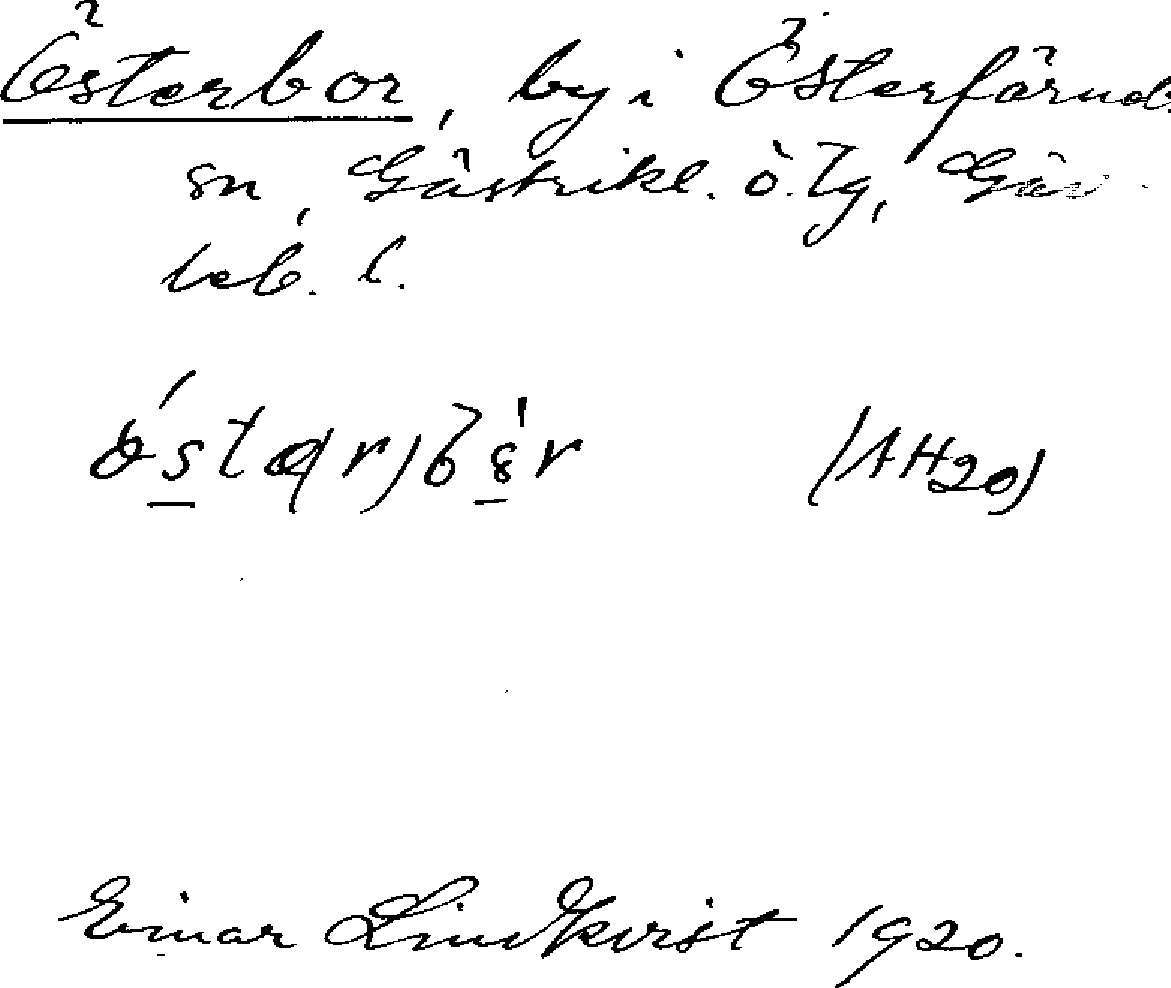 Österbor, by i Österfärnebo
sn, Gästrikl. ö. tg, Gäv
leb. l.
(AH20)
Einar Lindkvist 1920.